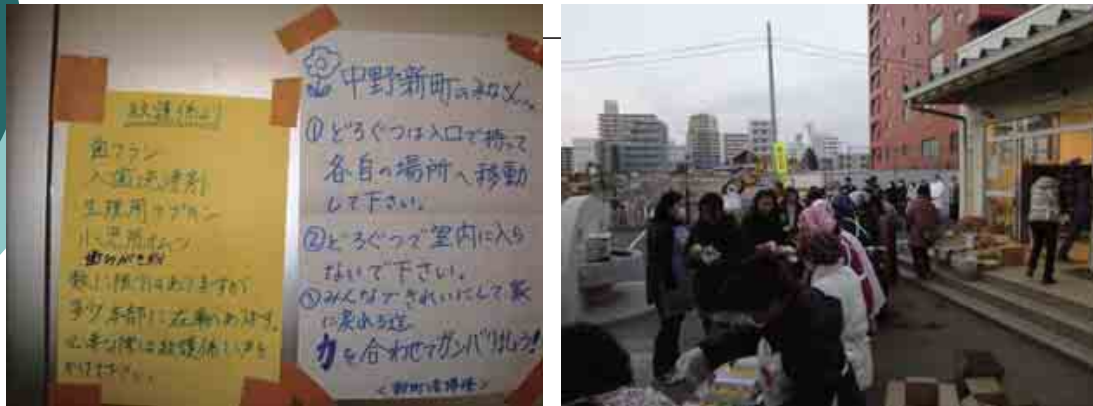 救護係より
歯ブラシ
入歯洗浄剤
生理用ナプキン
小児用オムツ
歯みがき粉
数に限りはありますが
多少本部に在庫あります。
必要な際は救護係に声を
中野新町のみなさんへ
①どろぐつは入口で持って
各自の場所へ移動
して下さい。
②どろぐつで室内に入ら
ないで下さい。
③みんなできれいにして家
に戻れる迄
力を合わせてガンバリましょう!